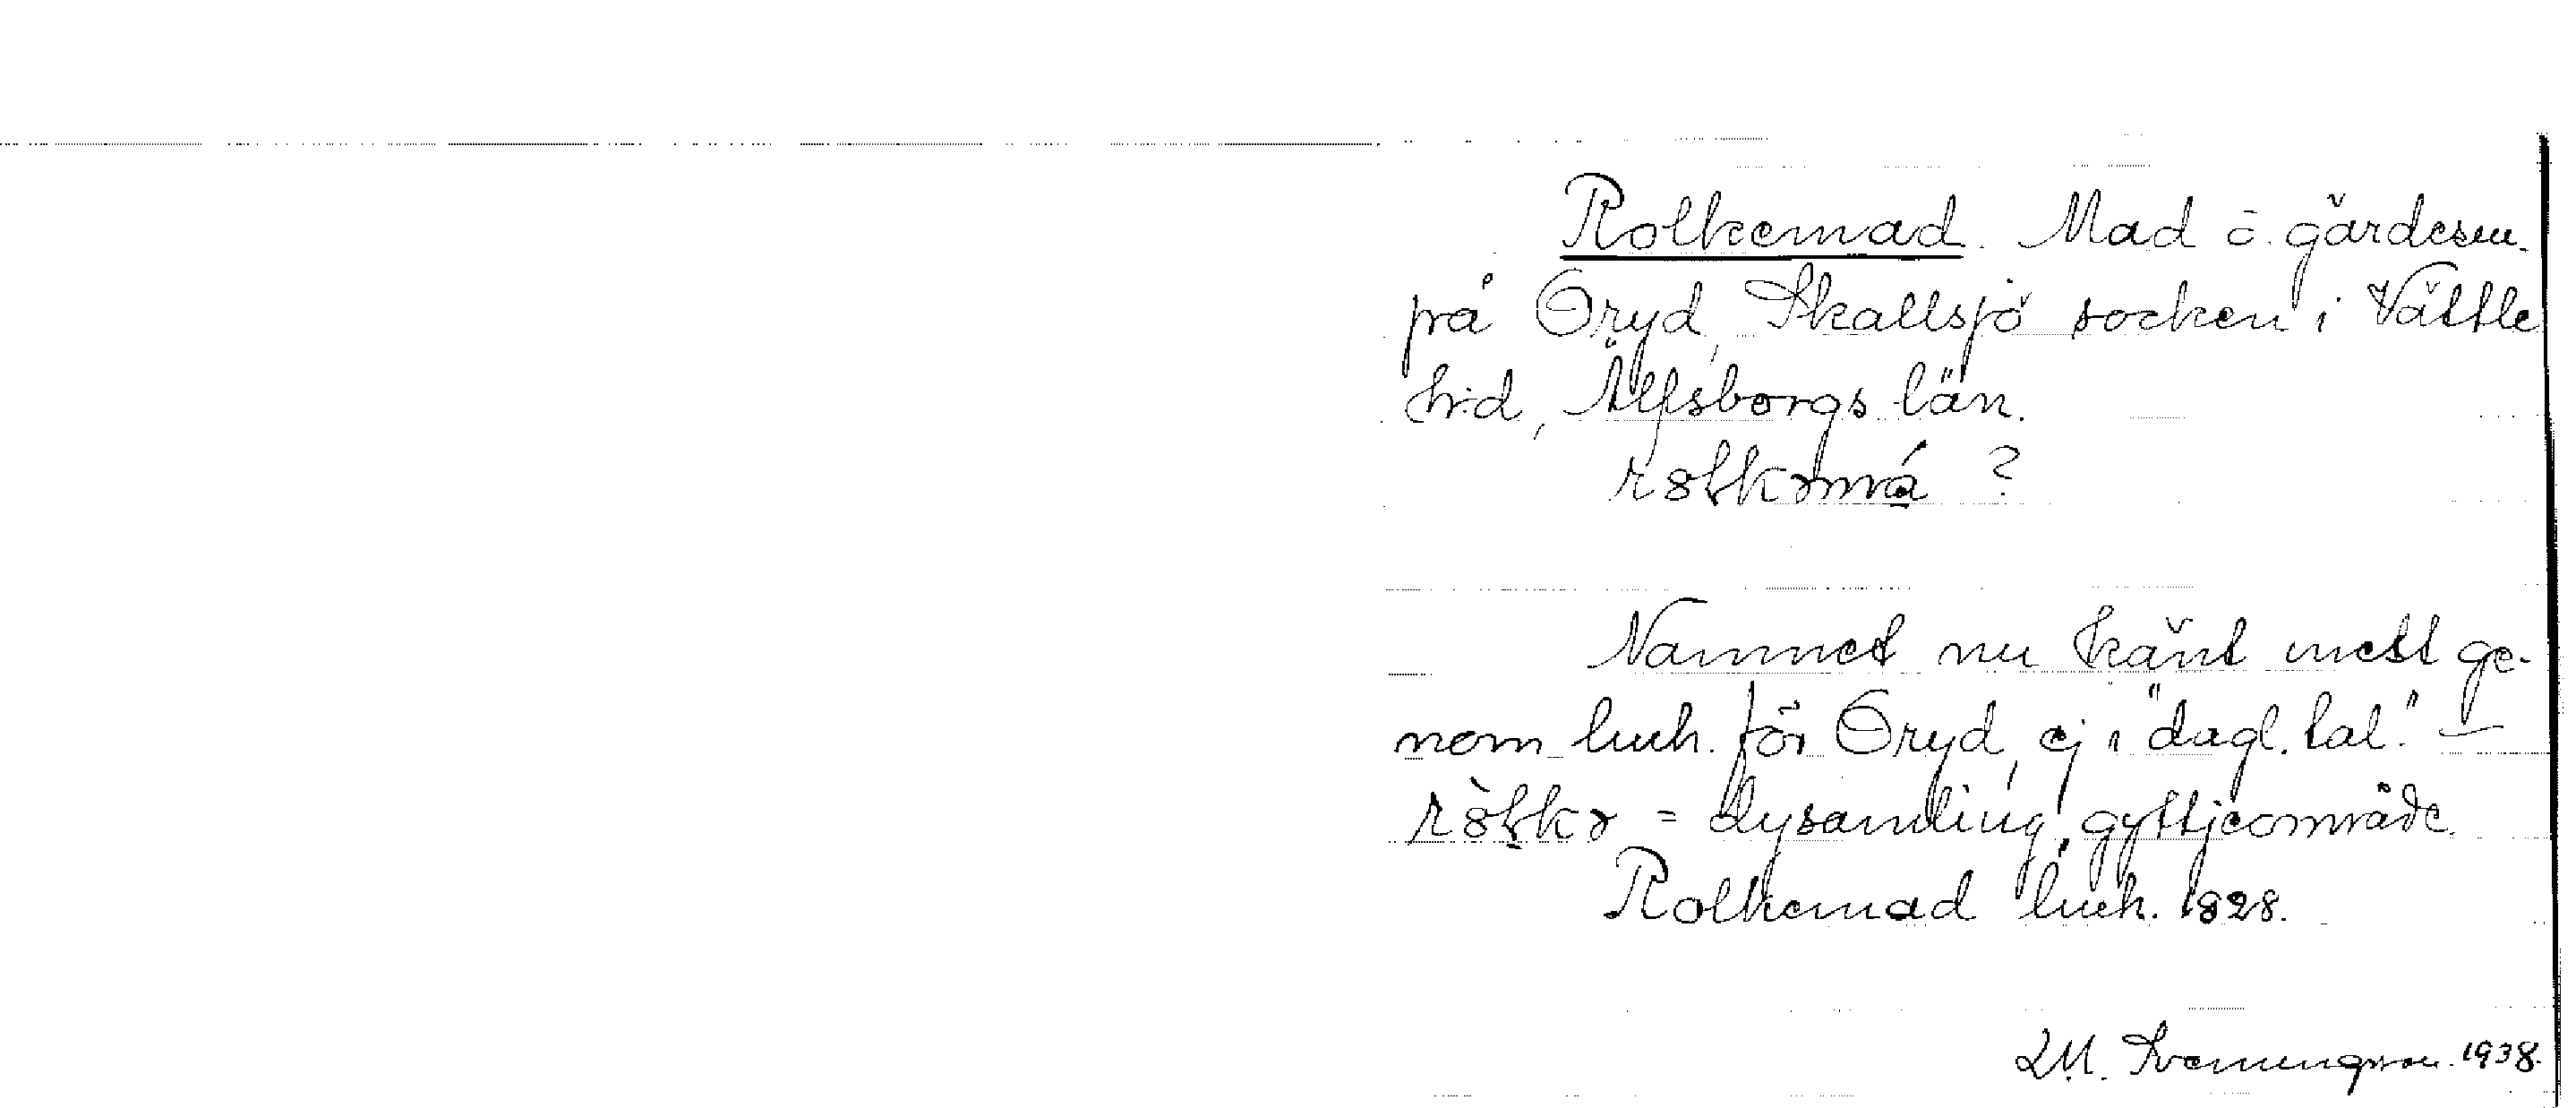 Rolkemad. Mad o. gärdesm.
på Öryd, Skallsjö socken i Vättle
h:d, Älfsborgs län.
rɔłkəmá ?
Namnet nu känt mest ge-
nom luch. för Öryd, ej i "dagl. tal." —
rɔ̀łkə = dysamling, gyttjeområde.
Rolkemad luch. 1828.
Svenungsson. 1938.